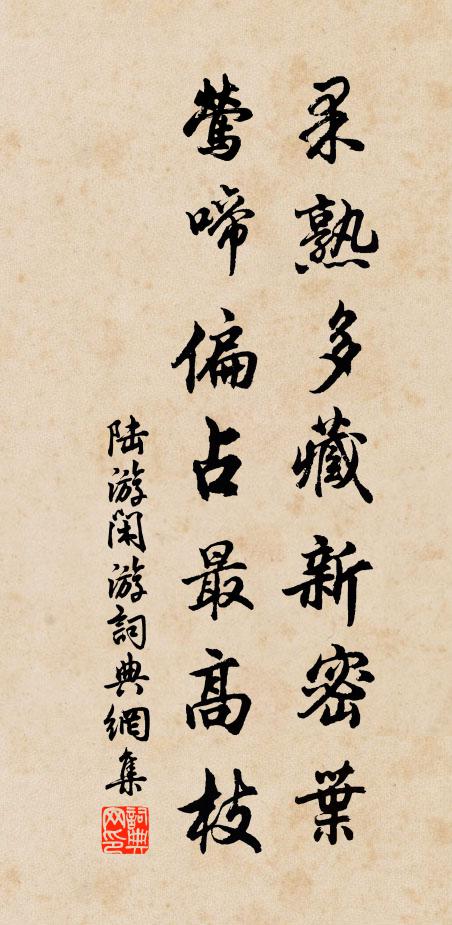 果熟多藏新密葉
鶯啼偏占最高枝
陸游閑游詞典網集
詞典網印